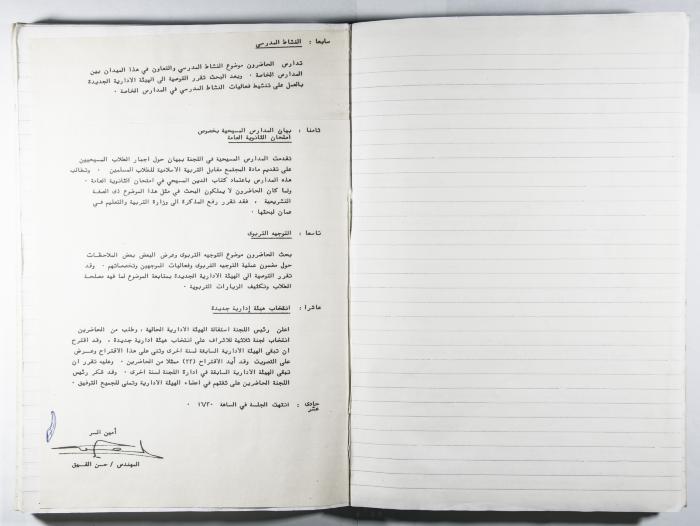 سابعا : النشاط المدرسي
تدارس الحاضرون موضوع النشاط المدرسي والتعاون في هذا الميدان بين
المدارس الخاصة . وبعد البحث تقرر التوصية الى الهيئة الادارية الجديدة
بالعمل على تنشيط فعاليات النشاط المدرسي في المدارس الخاصة .
ثامنا : بيان المدارس المسيحية بخصوص
امتحان الثانوية العامة
تقدمت المدارس المسيحية في اللجنة ببيان حول اجبار الطلاب المسيحيين
على تقديم مادة المجتمع مقابل التربية الاسلامية للطلاب المسلمين . وتطالب
هذه المدارس باعتماد كتاب الدين المسيحي في امتحان الثانوية العامة .
ولما كان الحاضرون لا يملكون البحث في مثل هذا الموضوع ذى الصفة
التشريعية ، فقد تقرر رفع المذكرة الى وزارة التربية والتعليم في
عمان لبحثها .
تاسعا : التوجيه التربوى
بحث الحاضرون موضوع التوجيه التربوى وعرض البعض بعض الملاحظات
حول مضمون عملية التوجيه التربوى وفعاليات الموجهين وتخصصاتهم . وقد
تقرر التوصية الى الهيئة الادارية الجديدة بمتابعة الموضوع لما فيه مصلحة
الطلاب وتكثيف الزيارات التربوية .
عاشرا : انتخاب هيئة إدارية جديدة
اعلن رئيس اللجنة استقالة الهيئة الادارية الحالية ، وطلب من الحاضرين
انتخاب لجنة ثلاثية للاشراف على انتخاب هيئة ادارية جديدة . وقد اقترح
ان تبقى الهيئة الادارية السابقة لسنة اخرى وثني على هذا الاقتراح وعرض
على التصويت وقد أيد الاقتراح (٢٢) ممثلا من الحاضرين . وعليه تقرر ان
تبقى الهيئة الادارية السابقة في ادارة اللجنة لسنة اخرى . وقد شكر رئيس
اللجنة الحاضرين على ثقتهم في اعضاء الهيئة الادارية وتمنى للجميع التوفيق .
حادى عشر : انتهت الجلسة في الساعة ١٦/٣٠ .
أمين السر
المهندس / حسن القيق